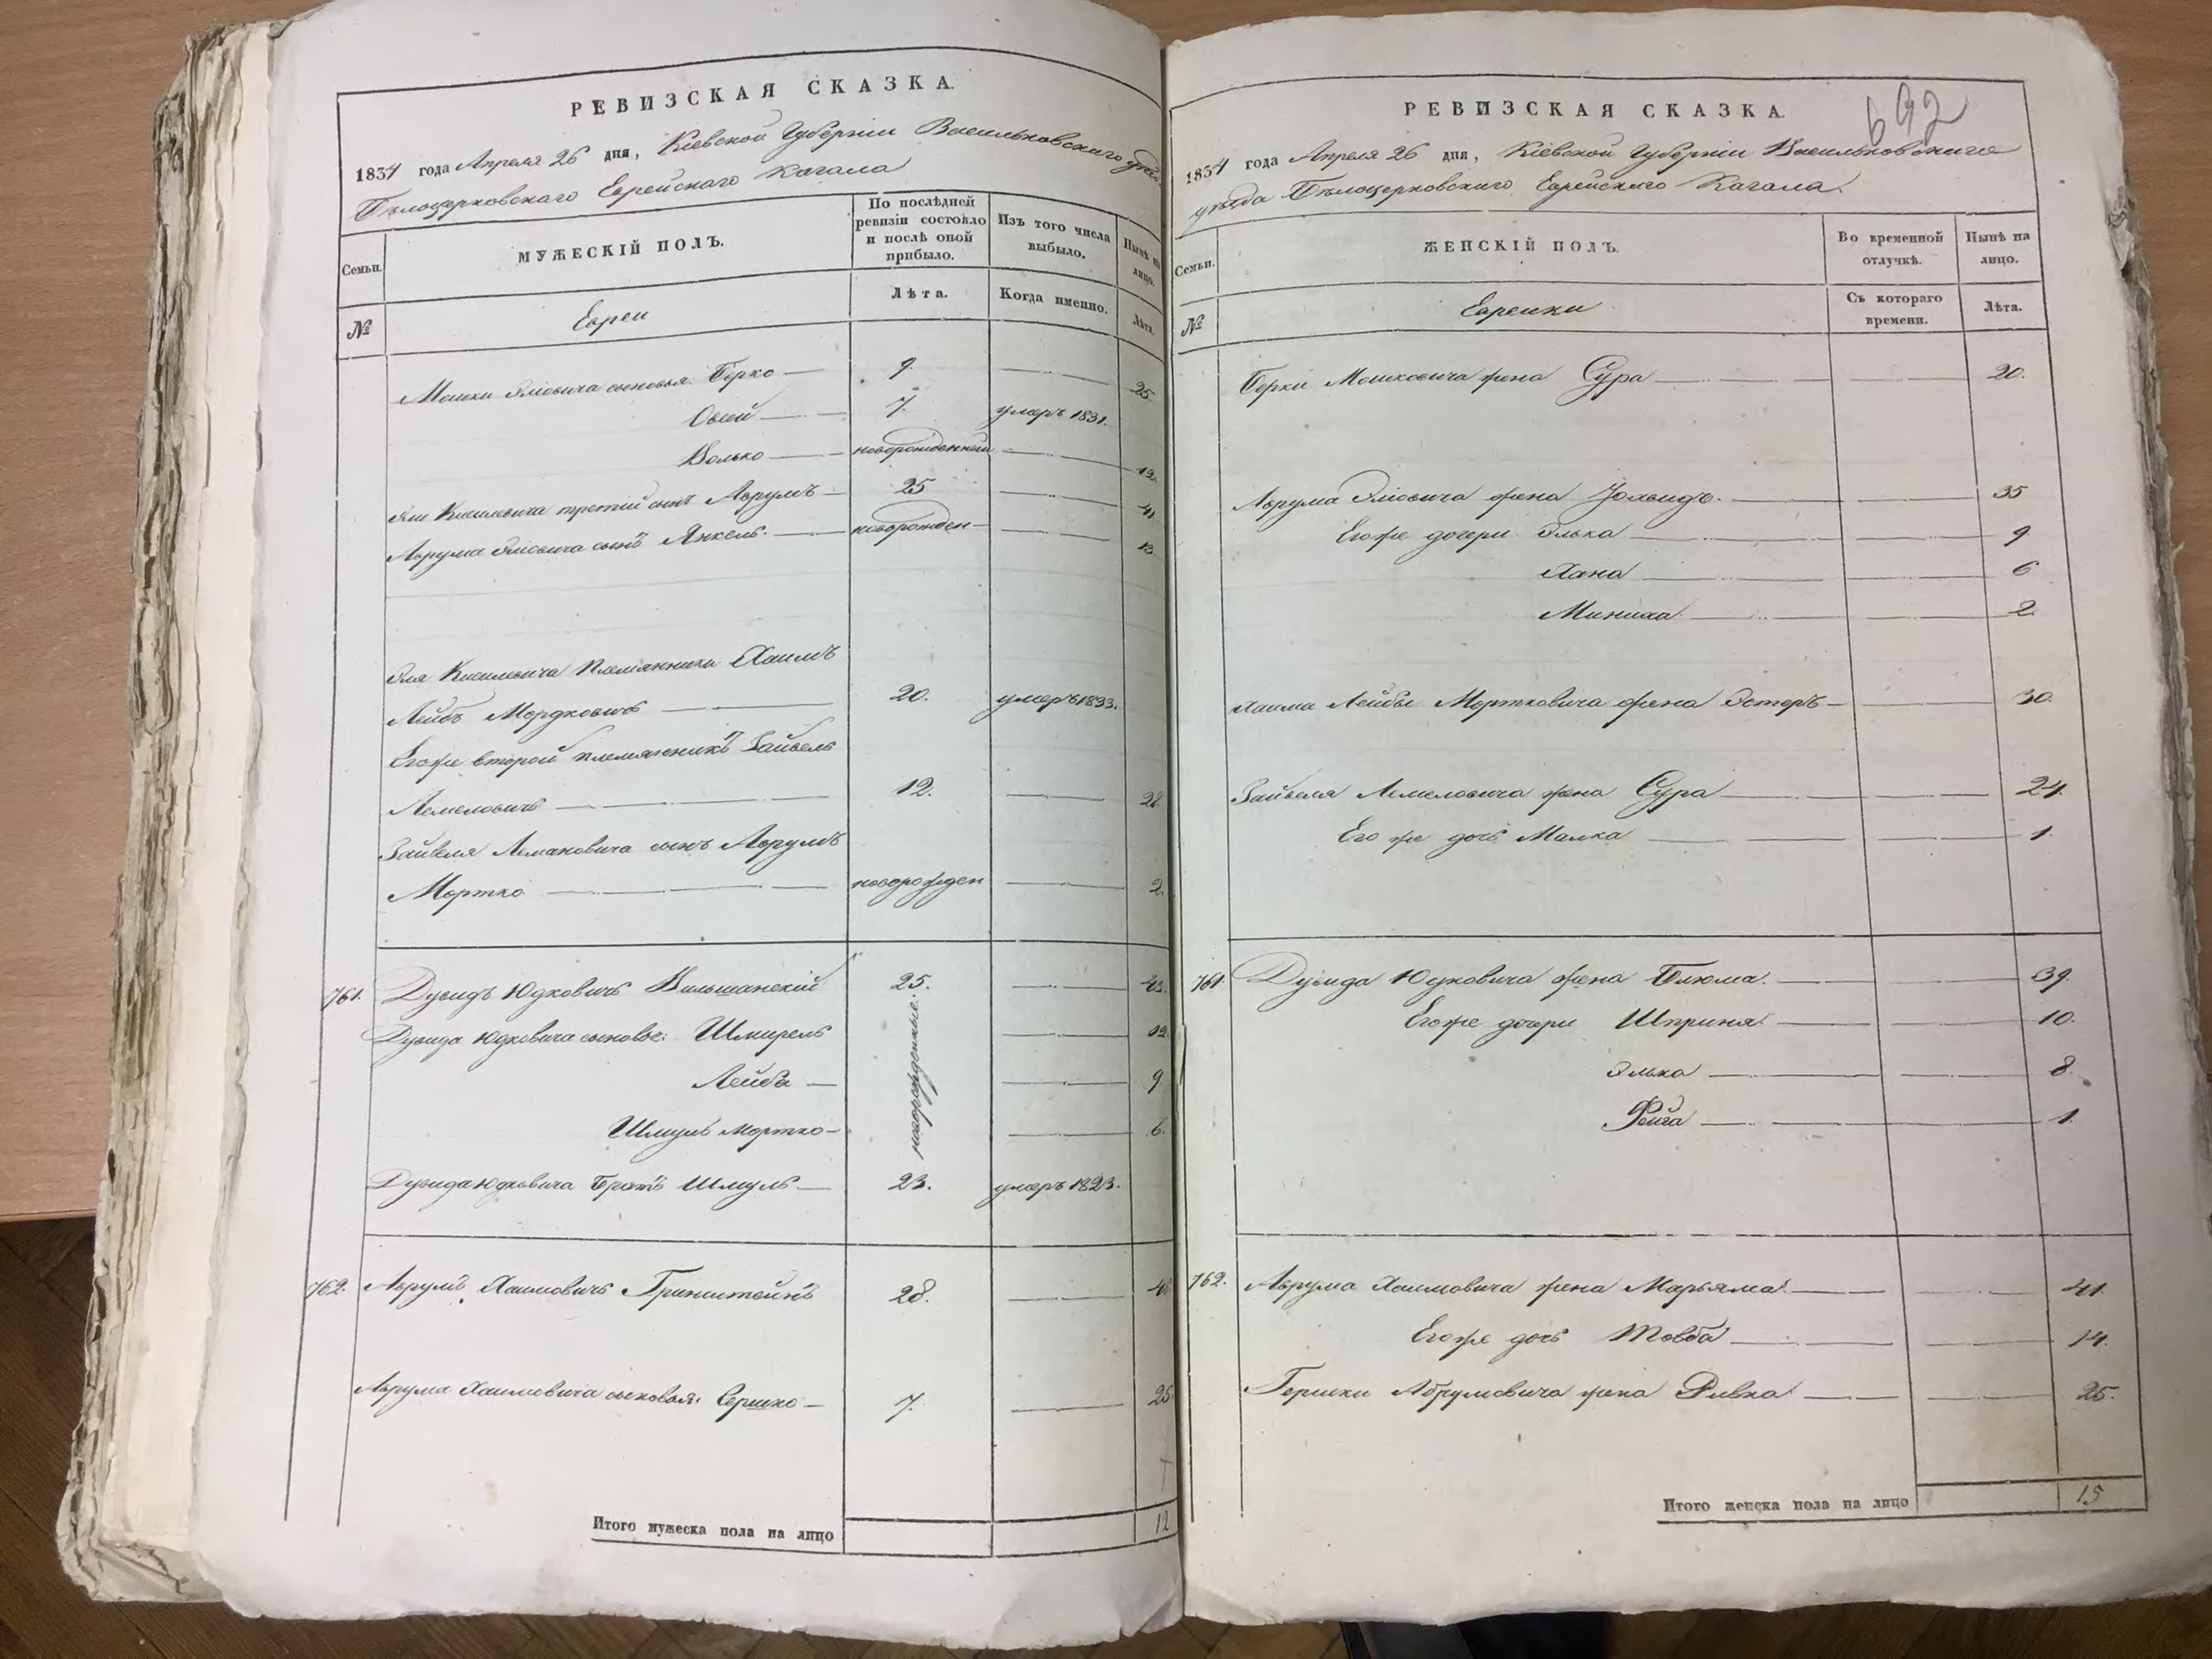 РЕВИЗСКАЯ СКАЗКА.
1834 года Апреля 26 дня, Кіевской Губерніи Васильковскаго уѣзда
Бѣлоцерковскаго Еврейскаго Кагала
Семьи.
МУЖЕСКІЙ ПОЛЪ.
По послѣдней ревизіи состояло и послѣ оной прибыло.
Изъ того числа выбыло.
Нынѣ на лицо.
№
Евреи
Лѣта.
Когда именно.
Лѣта.
Мошки Эліовича сыновья Берко — 9. — 25.
Овсей — 7. умеръ 1831.
Волько — новорожденный — 12.
Эли Кисилевича третій сынъ Аврумъ — 25 — 41
Аврума Эліовича сынъ Янкель. — новорожден — 13.
Эля Кисилевича племянники Хаимъ
Лейбъ Мордковичъ — 20. умеръ 1833.
Егоже второй племянникъ Зайвель
Лемеловичъ — 12. — 28
Зайвеля Лемаковича сынъ Аврумъ
Мортко — новорожден — 2.
761. Дувидъ Юдковичъ Вильшанскій 25. —
Дувида Юдковича сыновье: Шмирель —
новорожденные.
Лейба — 9
Шмуль Мортко — 6.
Дувида Юдковича братъ Шмуль — 23. умеръ 1823.
762. Аврумъ Хаимовичъ Гринштейнъ 28. —
Аврума Хаимовича сыновья: Гершко — 7. — 25
Итого мужеска пола на лицо 12
692
РЕВИЗСКАЯ СКАЗКА.
1834 года Апреля 26 дня, Кіевской Губерніи Васильковскаго
уѣзда Бѣлоцерковскаго Еврейскаго Кагала.
Семьи.
ЖЕНСКІЙ ПОЛЪ.
Во временной отлучкѣ.
Нынѣ на лицо.
№
Еврейки
Съ котораго времени.
Лѣта.
Берки Мошковича жена Сура — 20.
Аврума Эліовича жена Йохвидъ. — 35
Егоже дочери Элька — 9
Хана — 6
Миниха — 2.
Хаима Лейбы Мортковича жена Эстеръ — 30.
Зайвеля Лемеловича жена Сура — 24.
Его же дочь Малка — 1.
761 Дувида Юдковича жена Блюма. — 39.
Егоже дочери Шприня — 10.
Элька — 8.
Фейга — 1.
762. Аврума Хаимовича жена Марьяма — 41.
Егоже дочь Товба — 14.
Гершки Абрумовича жена Ривка — 25.
Итого женска пола на лицо 15